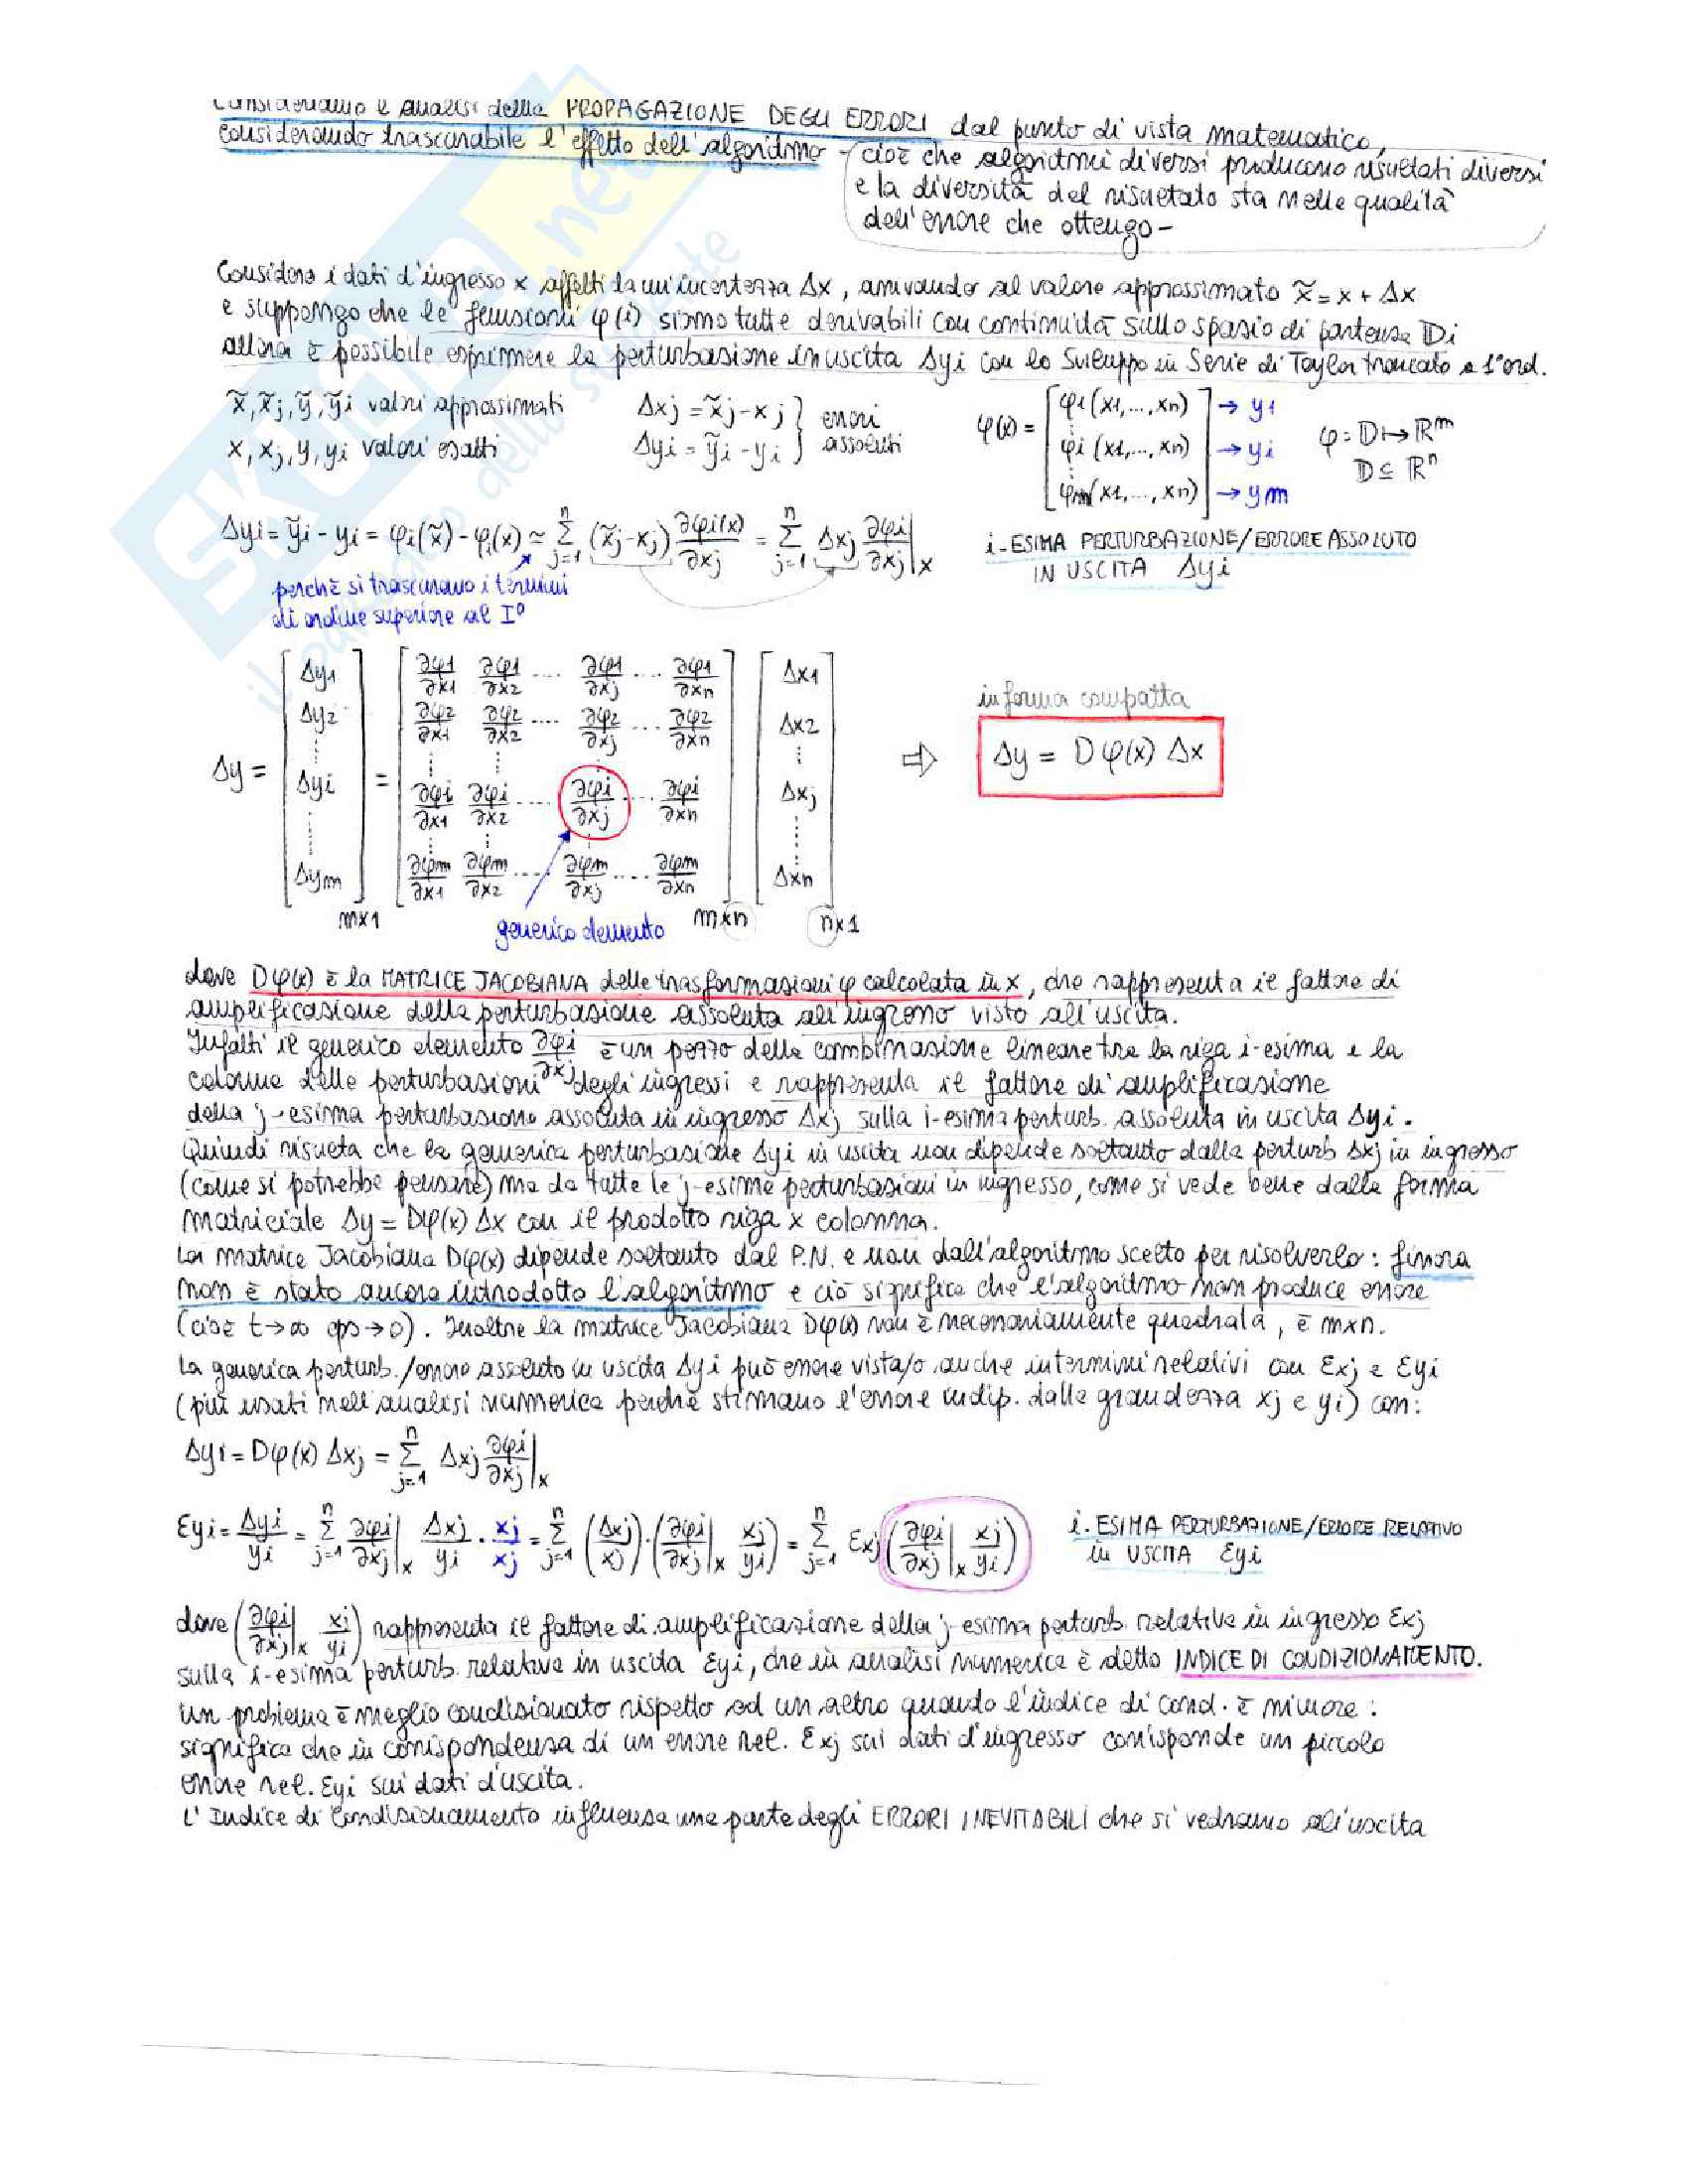 Consideriamo l'analisi della PROPAGAZIONE DEGLI ERRORI dal punto di vista matematico,
considerando trascurabile l'effetto dell'algoritmo - cioè che algoritmi diversi producono risultati diversi
e la diversità del risultato sta nelle qualità
dell'errore che ottengo -
Considero i dati d'ingresso x affetti da un'incertezza Δx, arrivando al valore approssimato x̃ = x + Δx
e suppongo che le funzioni φ(i) siano tutte derivabili con continuità sullo spazio di partenza Di
allora è possibile esprimere la perturbazione in uscita Δyi con lo sviluppo in Serie di Taylor troncato a 1°ord.
x̃, x̃j, ỹ, ỹi valori approssimati Δxj = x̃j - xj } errori
x, xj, y, yi valori esatti Δyi = ỹi - yi } assoluti
φ(x) = [ φ1(x1,...,xn) → y1
φi(x1,...,xn) → yi
φm(x1,...,xn) ] → ym
φ: D ↦ ℝm
D ⊆ ℝn
Δyi = ỹi - yi = φi(x̃) - φi(x) ≃ Σ j=1 n (x̃j - xj) ∂φi(x)/∂xj = Σ j=1 n Δxj ∂φi/∂xj |x
i-ESIMA PERTURBAZIONE/ERRORE ASSOLUTO
IN USCITA Δyi
perchè si trascurano i termini
di ordine superiore al I°
Δy = [ Δy1 Δy2 ⋮ Δyi ⋮ Δym ] m×1 =
[ ∂φ1/∂x1 ∂φ1/∂x2 .... ∂φ1/∂xj .... ∂φ1/∂xn
∂φ2/∂x1 ∂φ2/∂x2 .... ∂φ2/∂xj .... ∂φ2/∂xn
⋮ ⋮
∂φi/∂x1 ∂φi/∂x2 .... ∂φi/∂xj .... ∂φi/∂xn
⋮ ⋮ ⋮
∂φm/∂x1 ∂φm/∂x2 .... ∂φm/∂xj .... ∂φm/∂xn ] m×n
[ Δx1 Δx2 ⋮ Δxj ⋮ Δxn ] n×1
generico elemento
⇒ in forma compatta
Δy = Dφ(x) Δx
dove Dφ(x) è la MATRICE JACOBIANA delle trasformazioni φ calcolata in x, che rappresenta il fattore di
amplificazione della perturbazione assoluta all'ingresso visto all'uscita.
Infatti il generico elemento ∂φi/∂xj è un pezzo della combinazione lineare tra la riga i-esima e la
colonna delle perturbazioni degli ingressi e rappresenta il fattore di amplificazione
della j-esima perturbazione assoluta in ingresso Δxj sulla i-esima perturb. assoluta in uscita Δyi.
Quindi risulta che la generica perturbazione Δyi in uscita non dipende soltanto dalla perturb Δxj in ingresso
(come si potrebbe pensare) ma da tutte le j-esime perturbazioni in ingresso, come si vede bene dalla forma
matriciale Δy = Dφ(x) Δx con il prodotto riga x colonna.
La matrice Jacobiana Dφ(x) dipende soltanto dal P.N. e non dall'algoritmo scelto per risolverlo: finora
non è stato ancora introdotto l'algoritmo e ciò significa che l'algoritmo non produce errore
(cioè t→∞ eps→0). Inoltre la matrice Jacobiana Dφ(x) non è necessariamente quadrata, è m×n.
La generica perturb./errore assoluto in uscita Δyi può essere vista/o anche in termini relativi con Exj e Eyi
(più usati nell'analisi numerica perchè stimano l'errore indip. dalla grandezza xj e yi) con:
Δyi = Dφ(x) Δxj = Σ j=1 n Δxj ∂φi/∂xj |x
Eyi = Δyi/yi = Σ j=1 n ∂φi/∂xj |x Δxj/yi · xj/xj = Σ j=1 n (Δxj/xj) · (∂φi/∂xj |x xj/yi) = Σ j=1 n Exj (∂φi/∂xj |x xj/yi)
i-ESIMA PERTURBAZIONE/ERRORE RELATIVO
in USCITA Eyi
dove (∂φi/∂xj |x xj/yi) rappresenta il fattore di amplificazione della j-esima perturb. relativa in ingresso Exj
sulla i-esima perturb. relativa in uscita Eyi, che in analisi numerica è detto INDICE DI CONDIZIONAMENTO.
Un problema è meglio condizionato rispetto ad un altro quando l'indice di cond. è minore:
significa che in corrispondenza di un errore rel. Exj sui dati d'ingresso corrisponde un piccolo
errore rel. Eyi sui dati d'uscita.
L'Indice di Condizionamento influenza una parte degli ERRORI INEVITABILI che si vedranno all'uscita